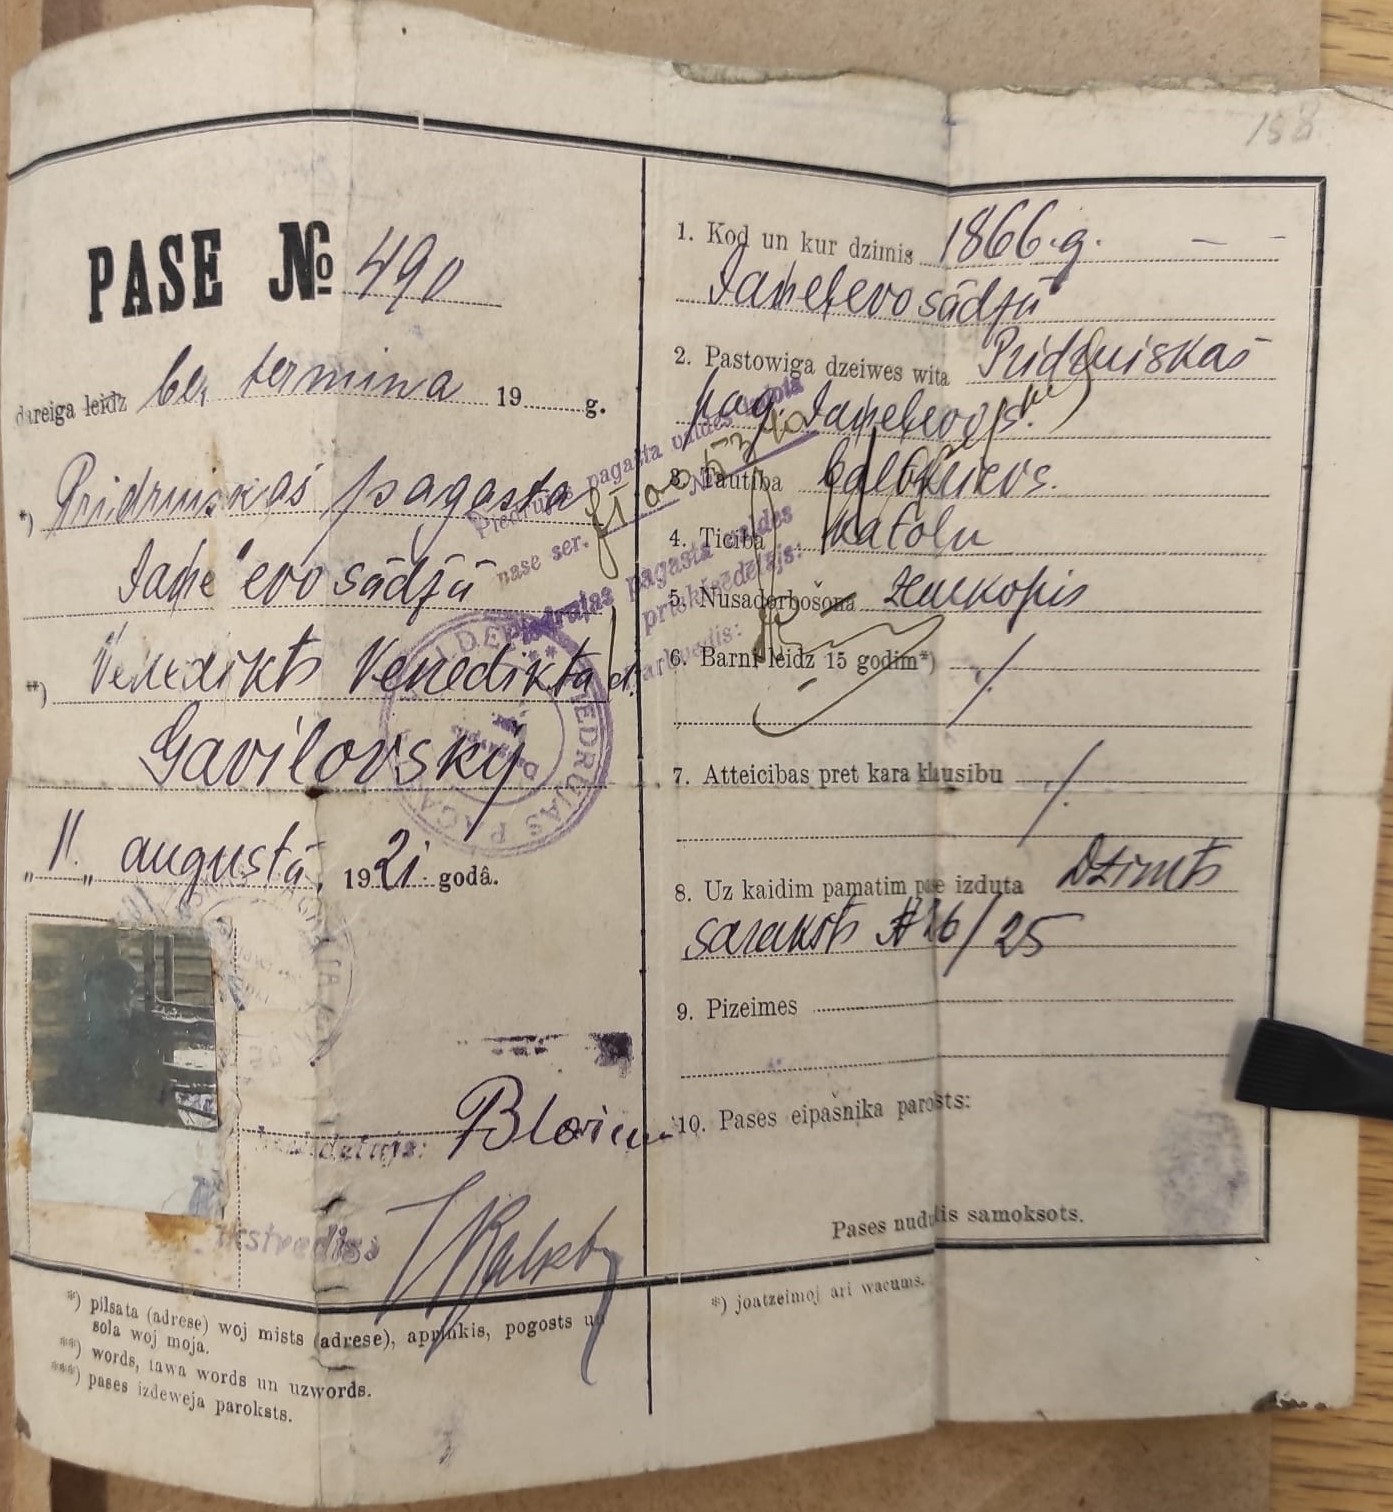 158
PASE № 490
dareiga leidz bez termina 19 g.
*) Pridruiskas pagasta
sādžā
**) Venedikts Venedikta d.
Gavilovsky
„11.„ augustā, 1921 godâ.
1. Kod un kur dzimis 1866.g. — -
sādžā
2. Pastowiga dzeiwes wita Pridruiskas
pag.
3. Tautiba baltkrievs.
4. Ticiba katolu
5. Nusadorbošona zemkopis
6. Barni leidz 15 godim*) /.
7. Atteicibas pret kara klausibu /.
8. Uz kaidim pamatim pase izduta Dzimts
saraksts № 16/25
9. Pizeimes
10. Pases eipašnika parosts:
Pases nudūlis samoksots.
Piedrujas pagasta valdes
pase ser. №
Piedrujas pagasta valdes
priekšsēdētājs:
darbvedis:
PIEDRUJAS PAGA
*) pilsata (adrese) woj mists (adrese), appinkis, pogosts un
sola woj moja.
**) words, tawa words un uzwords.
***) pases izdeweja paroksts.
*) joatzeimoj ari wacums.